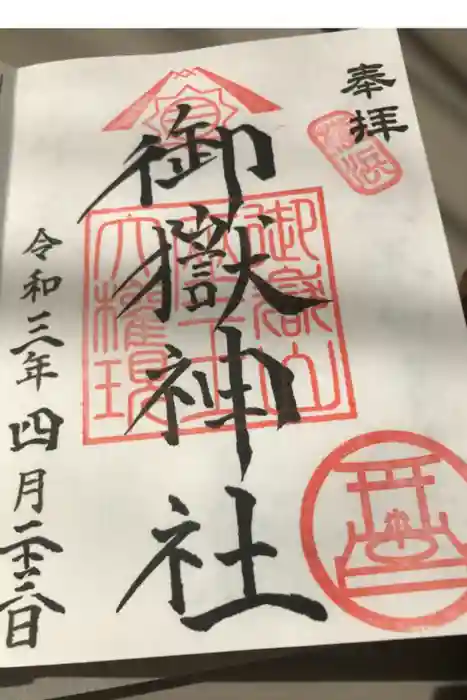 奉拝
御嶽神社
令和三年四月二十六日
御嶽山
大權現